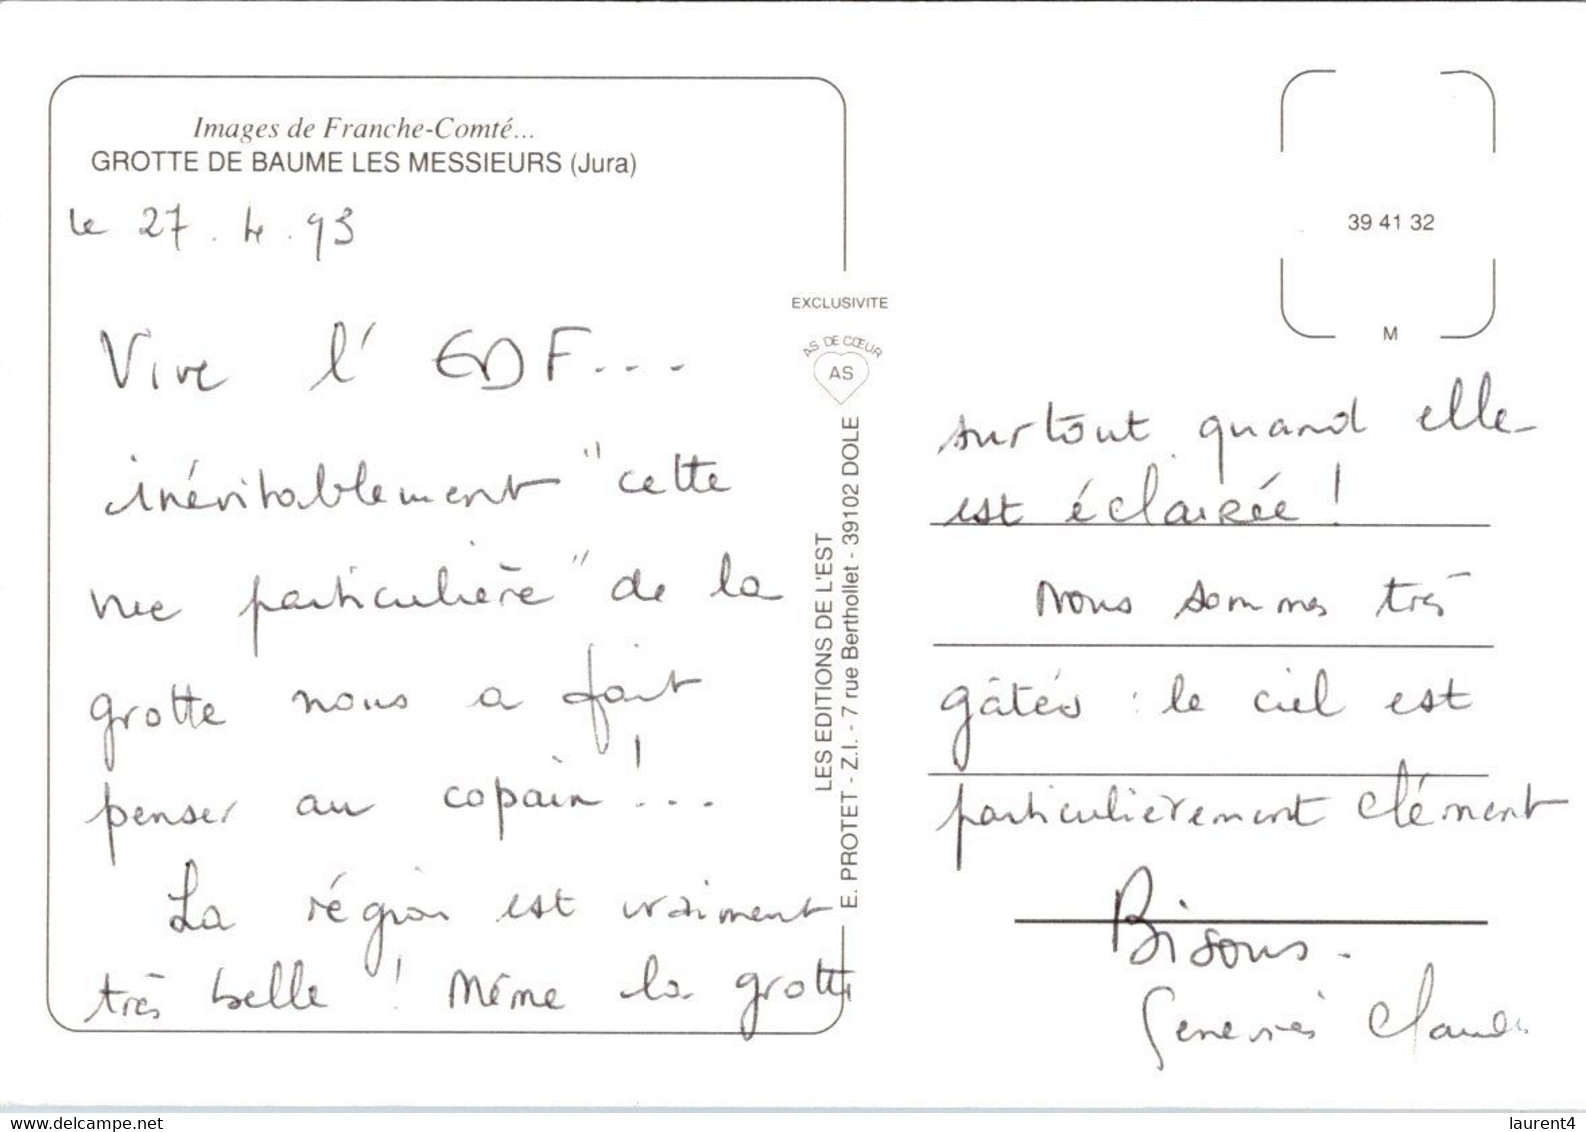 Images de Franche-Comté...
GROTTE DE BAUME LES MESSIEURS (Jura)
le 27.4.93
Vive l'EDF...
inévitablement "cette
vue particulière" de la
grotte nous a fait
penser au copain !...
La région est vraiment
très belle ! Même la grotte
EXCLUSIVITE
AS DE CŒUR
AS
LES EDITIONS DE L'EST
E. PROTET - Z.I. - 7 rue Berthollet - 39102 DOLE
39 41 32
M
surtout quand elle
est éclairée !
Nous sommes très
gâtés : le ciel est
particulièrement clément
Bisous.
Claude
www.delcampe.net
laurent4